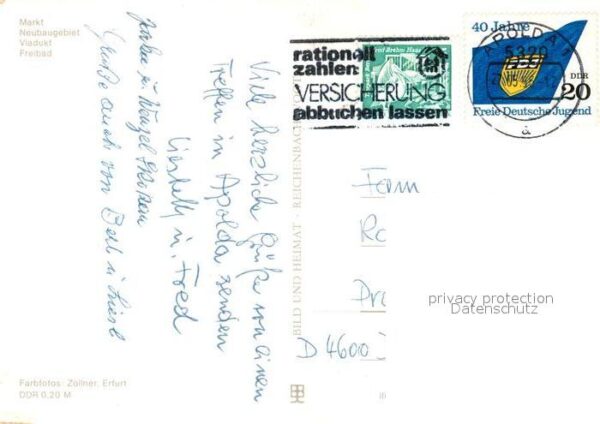 Markt
Neubaugebiet
Viadukt
Freibad
Viele herzliche Grüße von einem
Treffen in Apolda senden
Liesbeth u. Fred
Grüße auch von
rationell
zahlen
VERSICHERUNG
abbuchen lassen
40 Jahre
APOLDA
5320
DDR
20
Freie Deutsche Jugend
BILD UND HEIMAT · REICHENBACH
Fam
Ro
Dr
D 4600
privacy protection
Datenschutz
Farbfotos: Zöllner, Erfurt
DDR 0,20 M